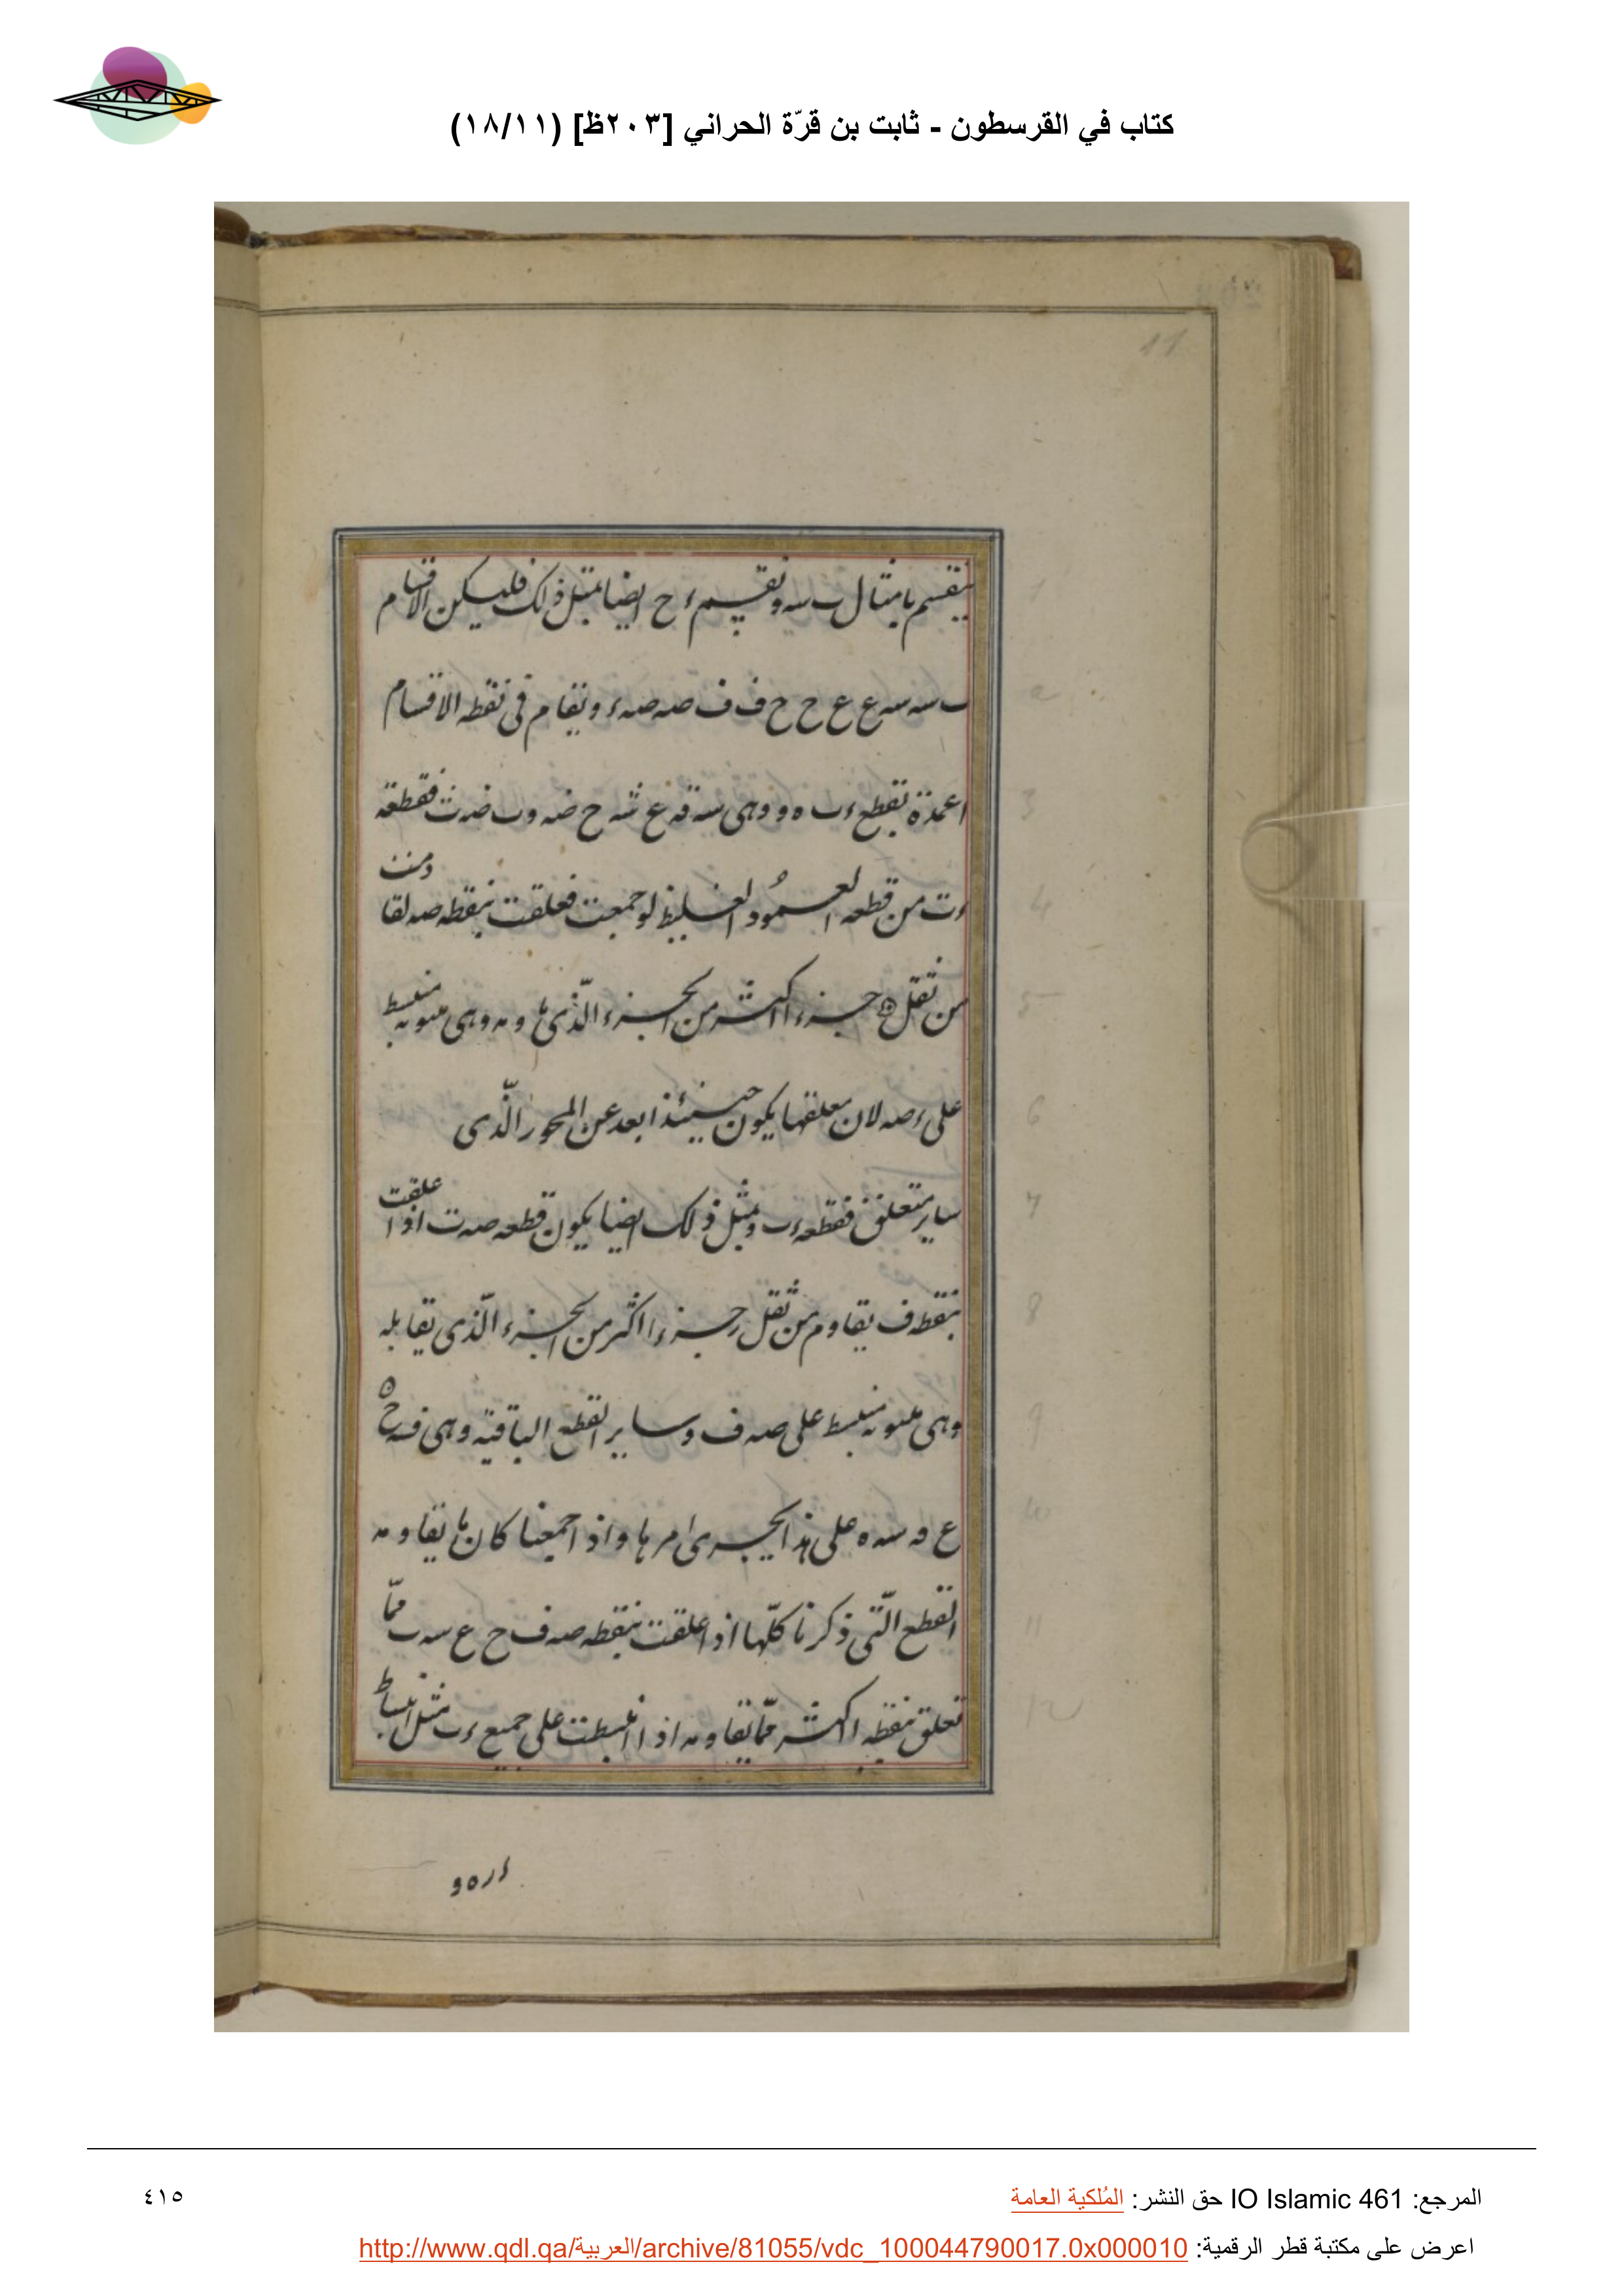 كتاب في القرسطون - ثابت بن قرّة الحراني [٢٠٣ظ] (١٨/١١)
11
ينقسم بامثال ب سه ونقسم ء ح ايضا بمثل ذلك فليكن الاقسام
ب سه سه ع ع ح ح ف ف صه صه ء ونقام في نقطه الاقسام
اعمدة تقطع ء ب ه و وهى سه قه ع شه ح ضه وب ضه ث فقطعة
ء ت من قطعه العمود الغليظ لو جمعت فعلقت بنقطه صه لقاومت
من ثقل ح جزءا اكثر من الجزء الّذى يقاومه وهى ملتويه منبسط
على ء صه لان معلقها يكون حينئذ ابعد عن المحور الّذى
ساير متعلق فقطعه ء ب وبمثل ذلك ايضا يكون قطعه صه ت اذا علقت
بنقطه ف يقاوم من ثقل ر جزءا اكثر من الجزء الّذى تقابله
وهى ملتويه منبسط على صه ف وساير القطع الباقية وهى فه ح
ع قه سه ه على هذا يجرى امرها واذا جمعنا كان ما يقاومه
القطع الّتى ذكرنا كلّها اذا علقت بنقطه صه ف ح ع سه ب ممّا
تعلق بنقطه ا اكثر ممّا يقاومه اذا انبسطت على جميع ء ب مثل انبساط
ء ر ه و
1
2
3
4
5
6
7
8
9
10
11
12
المرجع: IO Islamic 461 حق النشر: المُلكية العامة
٤١٥
اعرض على مكتبة قطر الرقمية: http://www.qdl.qa/العربية/archive/81055/vdc_100044790017.0x000010